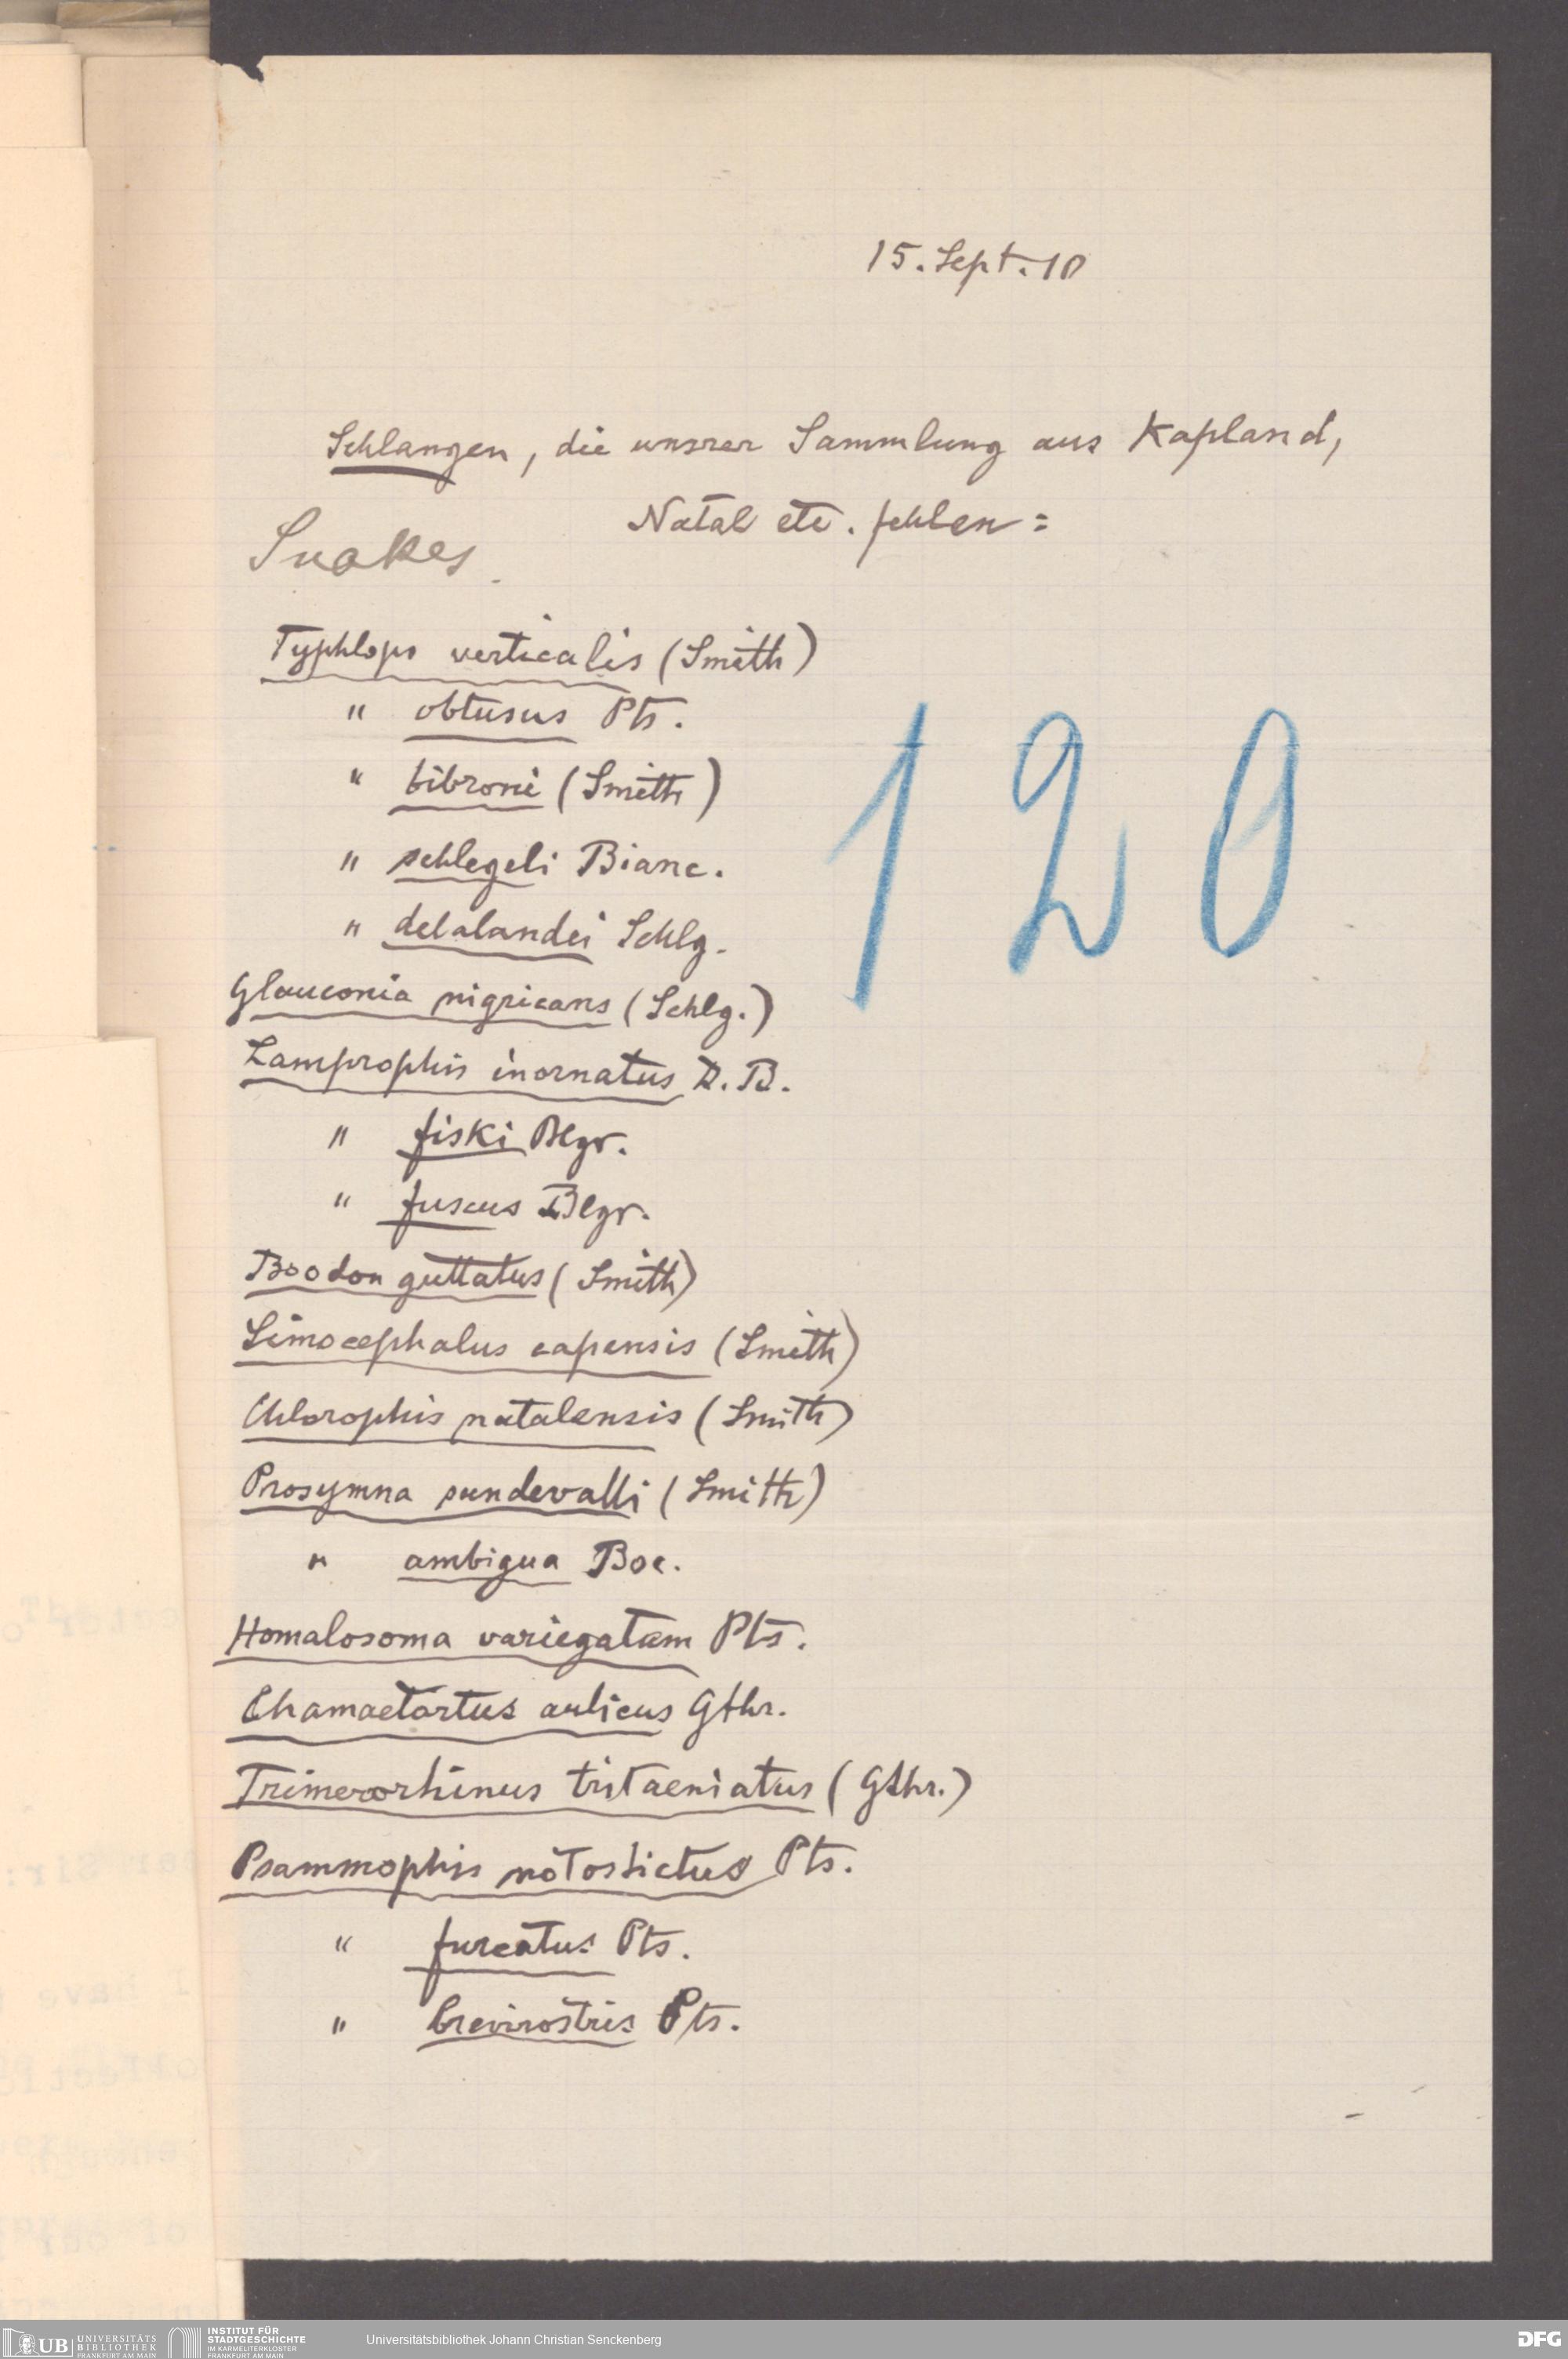 15. Sept. 10
Schlangen, die unsrer Sammlung aus Kapland,
Natal etc. fehlen:
Snakes.
Typhlops verticalis (Smith)
" obtusus Pts.
" bibroni (Smith)
" schlegeli Bianc.
" delalandei Schlg.
120
Glauconia nigricans (Schlg.)
Lamprophis inornatus D. B.
" fiski Blgr.
" fuscus Blgr.
Boodon guttatus (Smith)
Simocephalus capensis (Smith)
Chlorophis natalensis (Smith)
Prosymna sundevalli (Smith)
" ambigua Boc.
Homalosoma variegatum Pts.
Chamaetortus aulicus Gthr.
Trimerorhinus tritaeniatus (Gthr.)
Psammophis notostictus Pts.
" furcatus Pts.
" brevirostris Pts.
UB UNIVERSITÄTS
BIBLIOTHEK
FRANKFURT AM MAIN
INSTITUT FÜR
STADTGESCHICHTE
IM KARMELITERKLOSTER
FRANKFURT AM MAIN
Universitätsbibliothek Johann Christian Senckenberg
DFG